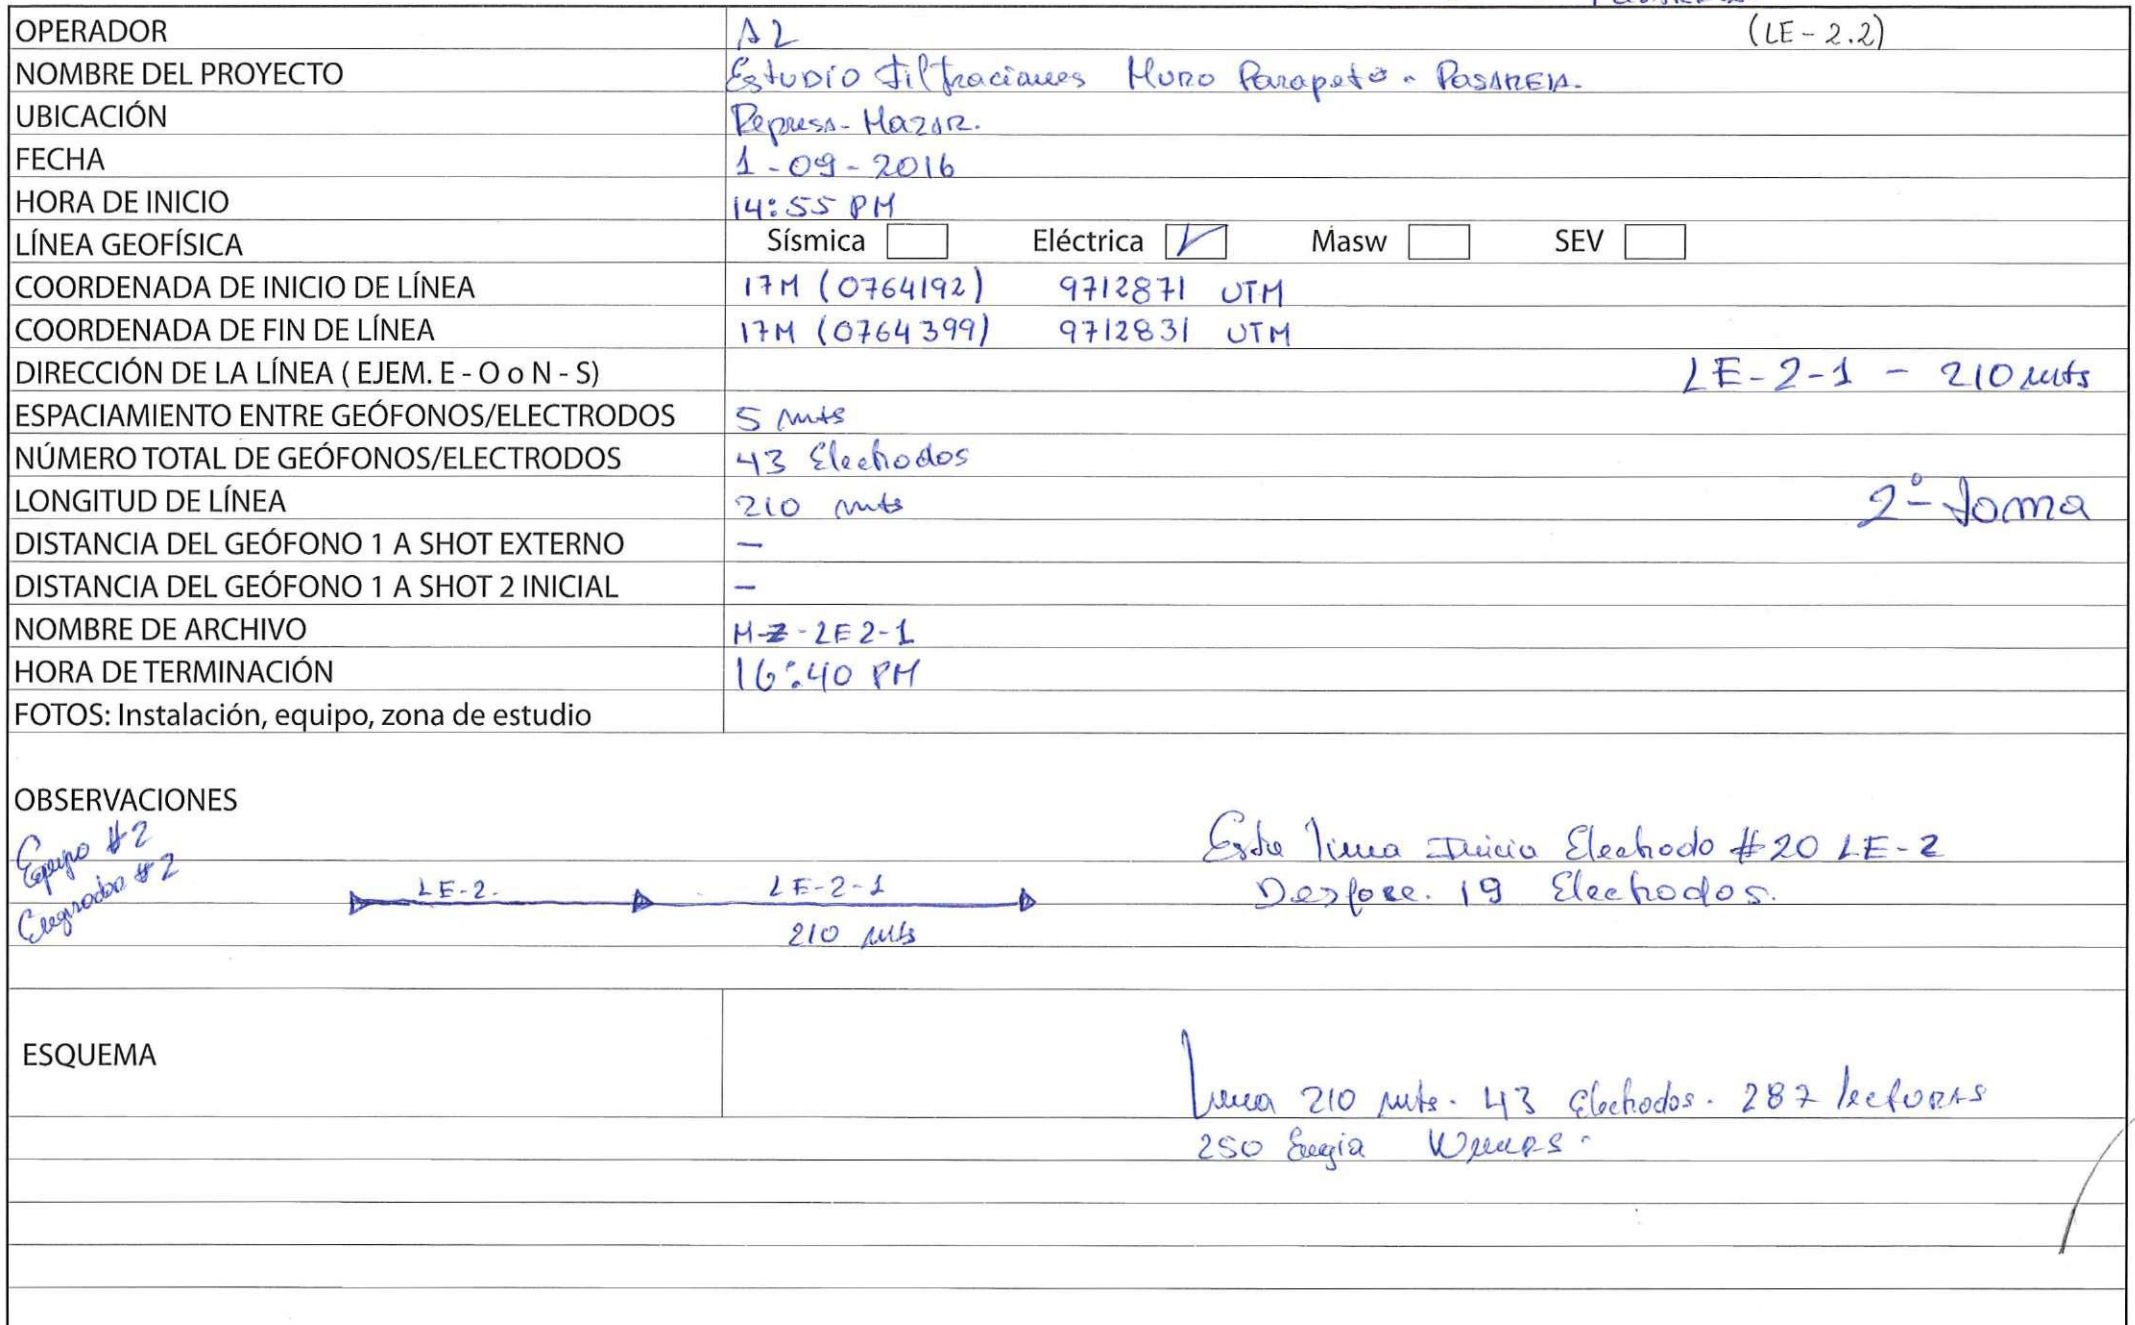 (LE-2.2)
OPERADOR A2
NOMBRE DEL PROYECTO Estudio Filtraciones Muro Parapeto - Pasarela.
UBICACIÓN Represa-Mazar.
FECHA 1-09-2016
HORA DE INICIO 14:55 PM
LÍNEA GEOFÍSICA Sísmica Eléctrica ✓ Masw SEV
COORDENADA DE INICIO DE LÍNEA 17M (0764192) 9712871 UTM
COORDENADA DE FIN DE LÍNEA 17M (0764399) 9712831 UTM
DIRECCIÓN DE LA LÍNEA ( EJEM. E - O o N - S) LE-2-1 - 210 mts
ESPACIAMIENTO ENTRE GEÓFONOS/ELECTRODOS 5 mts
NÚMERO TOTAL DE GEÓFONOS/ELECTRODOS 43 Electrodos
LONGITUD DE LÍNEA 210 mts 2º toma
DISTANCIA DEL GEÓFONO 1 A SHOT EXTERNO -
DISTANCIA DEL GEÓFONO 1 A SHOT 2 INICIAL -
NOMBRE DE ARCHIVO M-Z-LE2-1
HORA DE TERMINACIÓN 16:40 PM
FOTOS: Instalación, equipo, zona de estudio
OBSERVACIONES
Equipo #2
#2
LE-2. LE-2-1
210 mts
Esta linea Inicia Electrodo #20 LE-2
Desfase. 19 Electrodos.
ESQUEMA
Linea 210 mts. 43 Electrodos. 287 lecturas
250 Energia